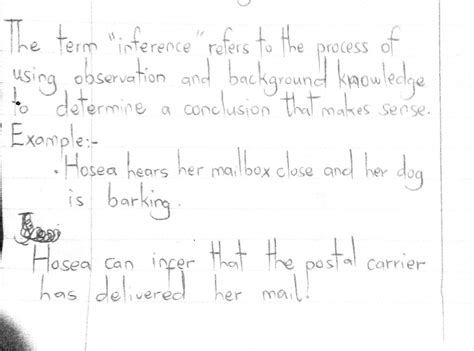 The term "inference" refers to the process of
using observation and background knowledge
to determine a conclusion that makes sense.
Example:-
• Hosea hears her mailbox close and her dog
is barking.
Hosea can infer that the postal carrier
has delivered her mail!